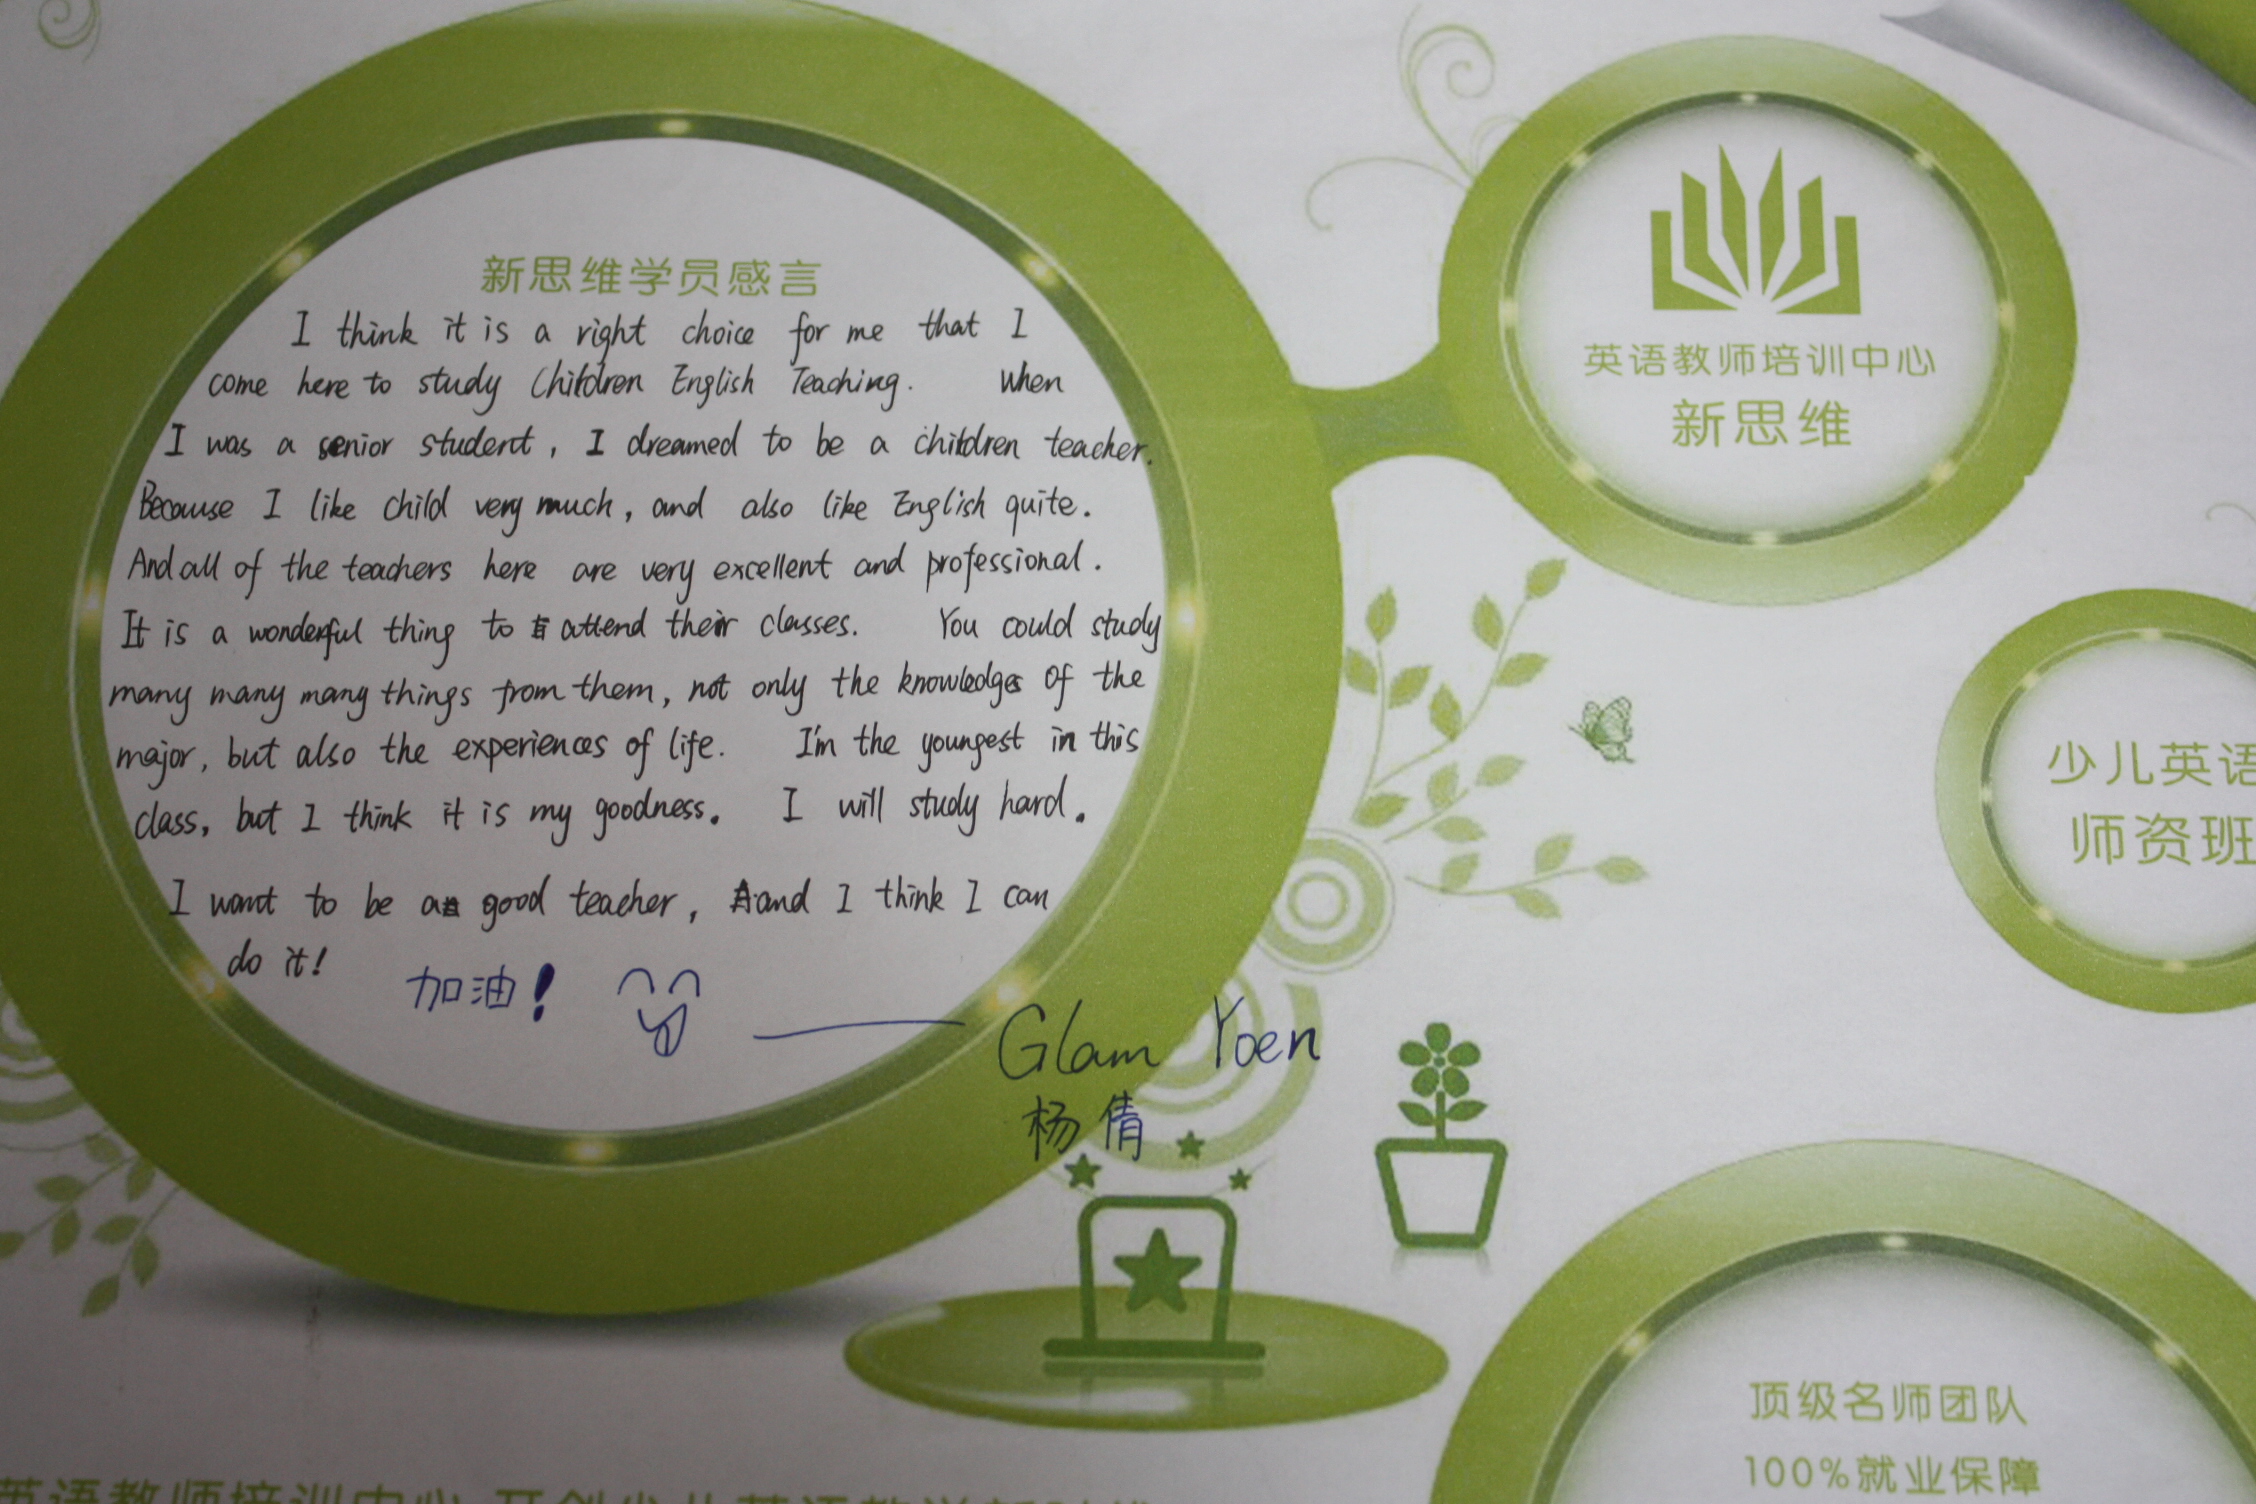 新思维学员感言
I think it is a right choice for me that I
come here to study Children English Teaching. When
I was a senior student, I dreamed to be a children teacher.
Because I like child very much, and also like English quite.
And all of the teachers here are very excellent and professional.
It is a wonderful thing to attend their classes. You could study
many many many things from them, not only the knowledges of the
major, but also the experiences of life. I'm the youngest in this
class, but I think it is my goodness. I will study hard.
I want to be a good teacher, and I think I can
do it!
加油!
Glam Yoen
杨倩
英语教师培训中心
新思维
少儿英语
师资班
顶级名师团队
100%就业保障
英语教师培训中心